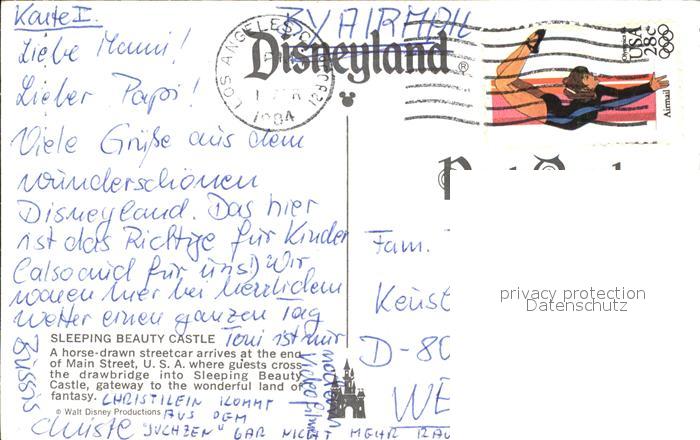 Karte I.
BY AIRMAIL
Liebe Mammi!
Lieber Papi!
Viele Grüße aus dem
wunderschönen
Disneyland. Das hier
ist das Richtige für Kinder
(also auch für uns!) Wir
waren hier bei herrlichem
Wetter einen ganzen Tag
Toni ist nur
Bussis
Christe
CHRISTILEIN KOMMT
AUS DEM
"JUCHZEN" GAR NICHT MEHR RAU
Disneyland®
LOS ANGELES, CA
1984
USA
28c
Olympics 84
Airmail
Fam.
D-80
WE
privacy protection
Datenschutz
SLEEPING BEAUTY CASTLE
A horse-drawn streetcar arrives at the end
of Main Street, U. S. A. where guests cross
the drawbridge into Sleeping Beauty
Castle, gateway to the wonderful land of
fantasy.
© Walt Disney Productions